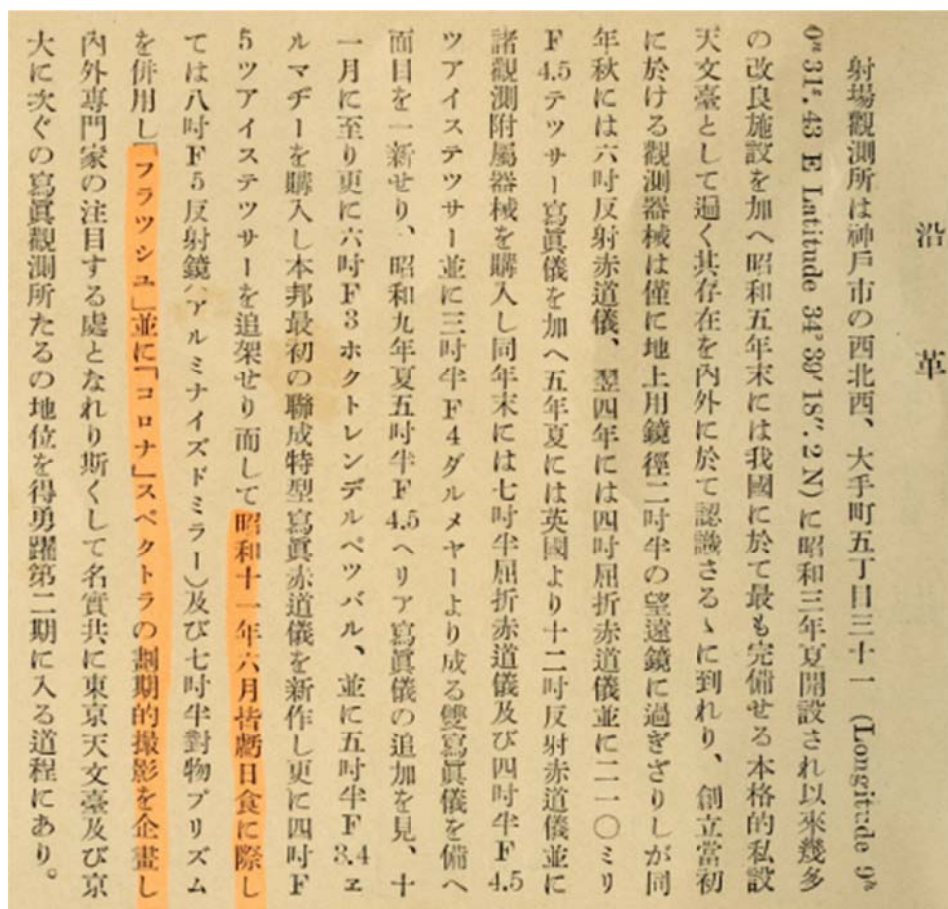 沿革
射場觀測所は神戶市の西北西、大手町五丁目三十一 (Longitude 9ʰ
0ᵐ 31ˢ. 43 E Latitude 34° 39′ 18″. 2 N) に昭和三年夏開設され以來幾多
の改良施設を加へ昭和五年末には我國に於て最も完備せる本格的私設
天文臺として遍く其存在を內外に於て認識さるゝに到れり、創立當初
に於ける觀測器械は僅に地上用鏡徑二吋半の望遠鏡に過ぎざりしが同
年秋には六吋反射赤道儀、翌四年には四吋屈折赤道儀並に二一〇ミリ
F 4.5 テツサー寫眞儀を加へ五年夏には英國より十二吋反射赤道儀並に
諸觀測附屬器械を購入し同年末には七吋半屈折赤道儀及び四吋半F 4.5
ツアイステツサー並に三吋半F 4 ダルメヤーより成る雙寫眞儀を備へ
面目を一新せり、昭和九年夏五吋半F 4.5 ヘリア寫眞儀の追加を見、十
一月に至り更に六吋F 3 ホクトレンデルペツバル、並に五吋半F 3.4 エ
ルマヂーを購入し本邦最初の聯成特型寫眞赤道儀を新作し更に四吋F
5 ツアイステツサーを追架せり而して昭和十一年六月皆虧日食に際し
ては八吋F 5 反射鏡(アルミナイズドミラー)及び七吋半對物プリズム
を併用し「フラツシユ」並に「コロナ」スペクトラの劃期的撮影を企畫し
內外專門家の注目する處となれり斯くして名實共に東京天文臺及び京
大に次ぐの寫眞觀測所たるの地位を得勇躍第二期に入る道程にあり。